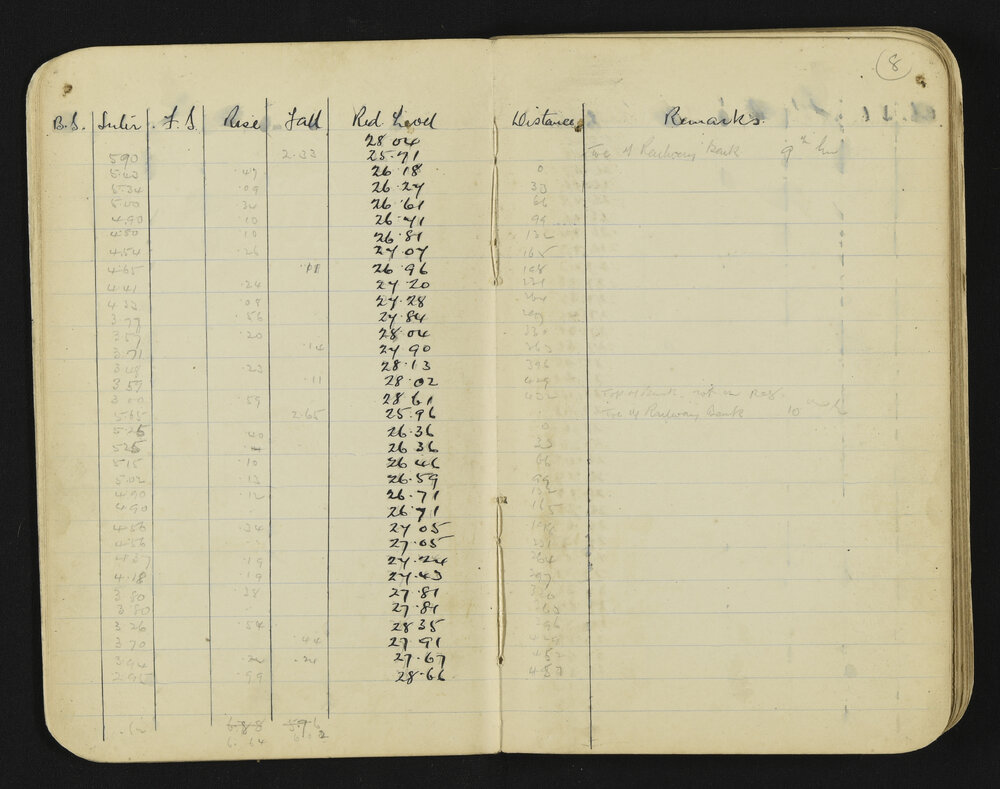 8
B.S. Inter. F.S. Rise Fall Red. Level Distance Remarks.
28.04
5.90 2.33 25.71 Toe of Railway Bank 9th line
5.43 .47 26.18 0
5.34 .09 26.27 33
5.00 .34 26.61 66
4.90 .10 26.71 99
4.80 .10 26.81 132
4.54 .26 27.07 165
4.65 .11 26.96 198
4.41 .24 27.20 231
4.33 .08 27.28 264
3.77 .56 27.84 297
3.57 .20 28.04 330
3.71 .14 27.90 363
3.48 .23 28.13 396
3.59 .11 28.02 429
3.00 .59 28.61 Top of Bank not on
5.65 2.65 25.96 Toe of Railway Bank 10th
5.25 .40 26.36 0
5.25 26.36 33
5.15 .10 26.46 66
5.02 .13 26.59 99
4.90 .12 26.71 132
4.90 26.71 165
4.56 .34 27.05 198
4.56 27.05 231
4.37 .19 27.24 264
4.18 .19 27.43 297
3.80 .38 27.81
3.80 27.81
3.26 .54 28.35 396
3.70 .44 27.91 429
3.94 .24 .24 27.67 452
2.95 .99 28.66 487
6.88 5.96
6.64